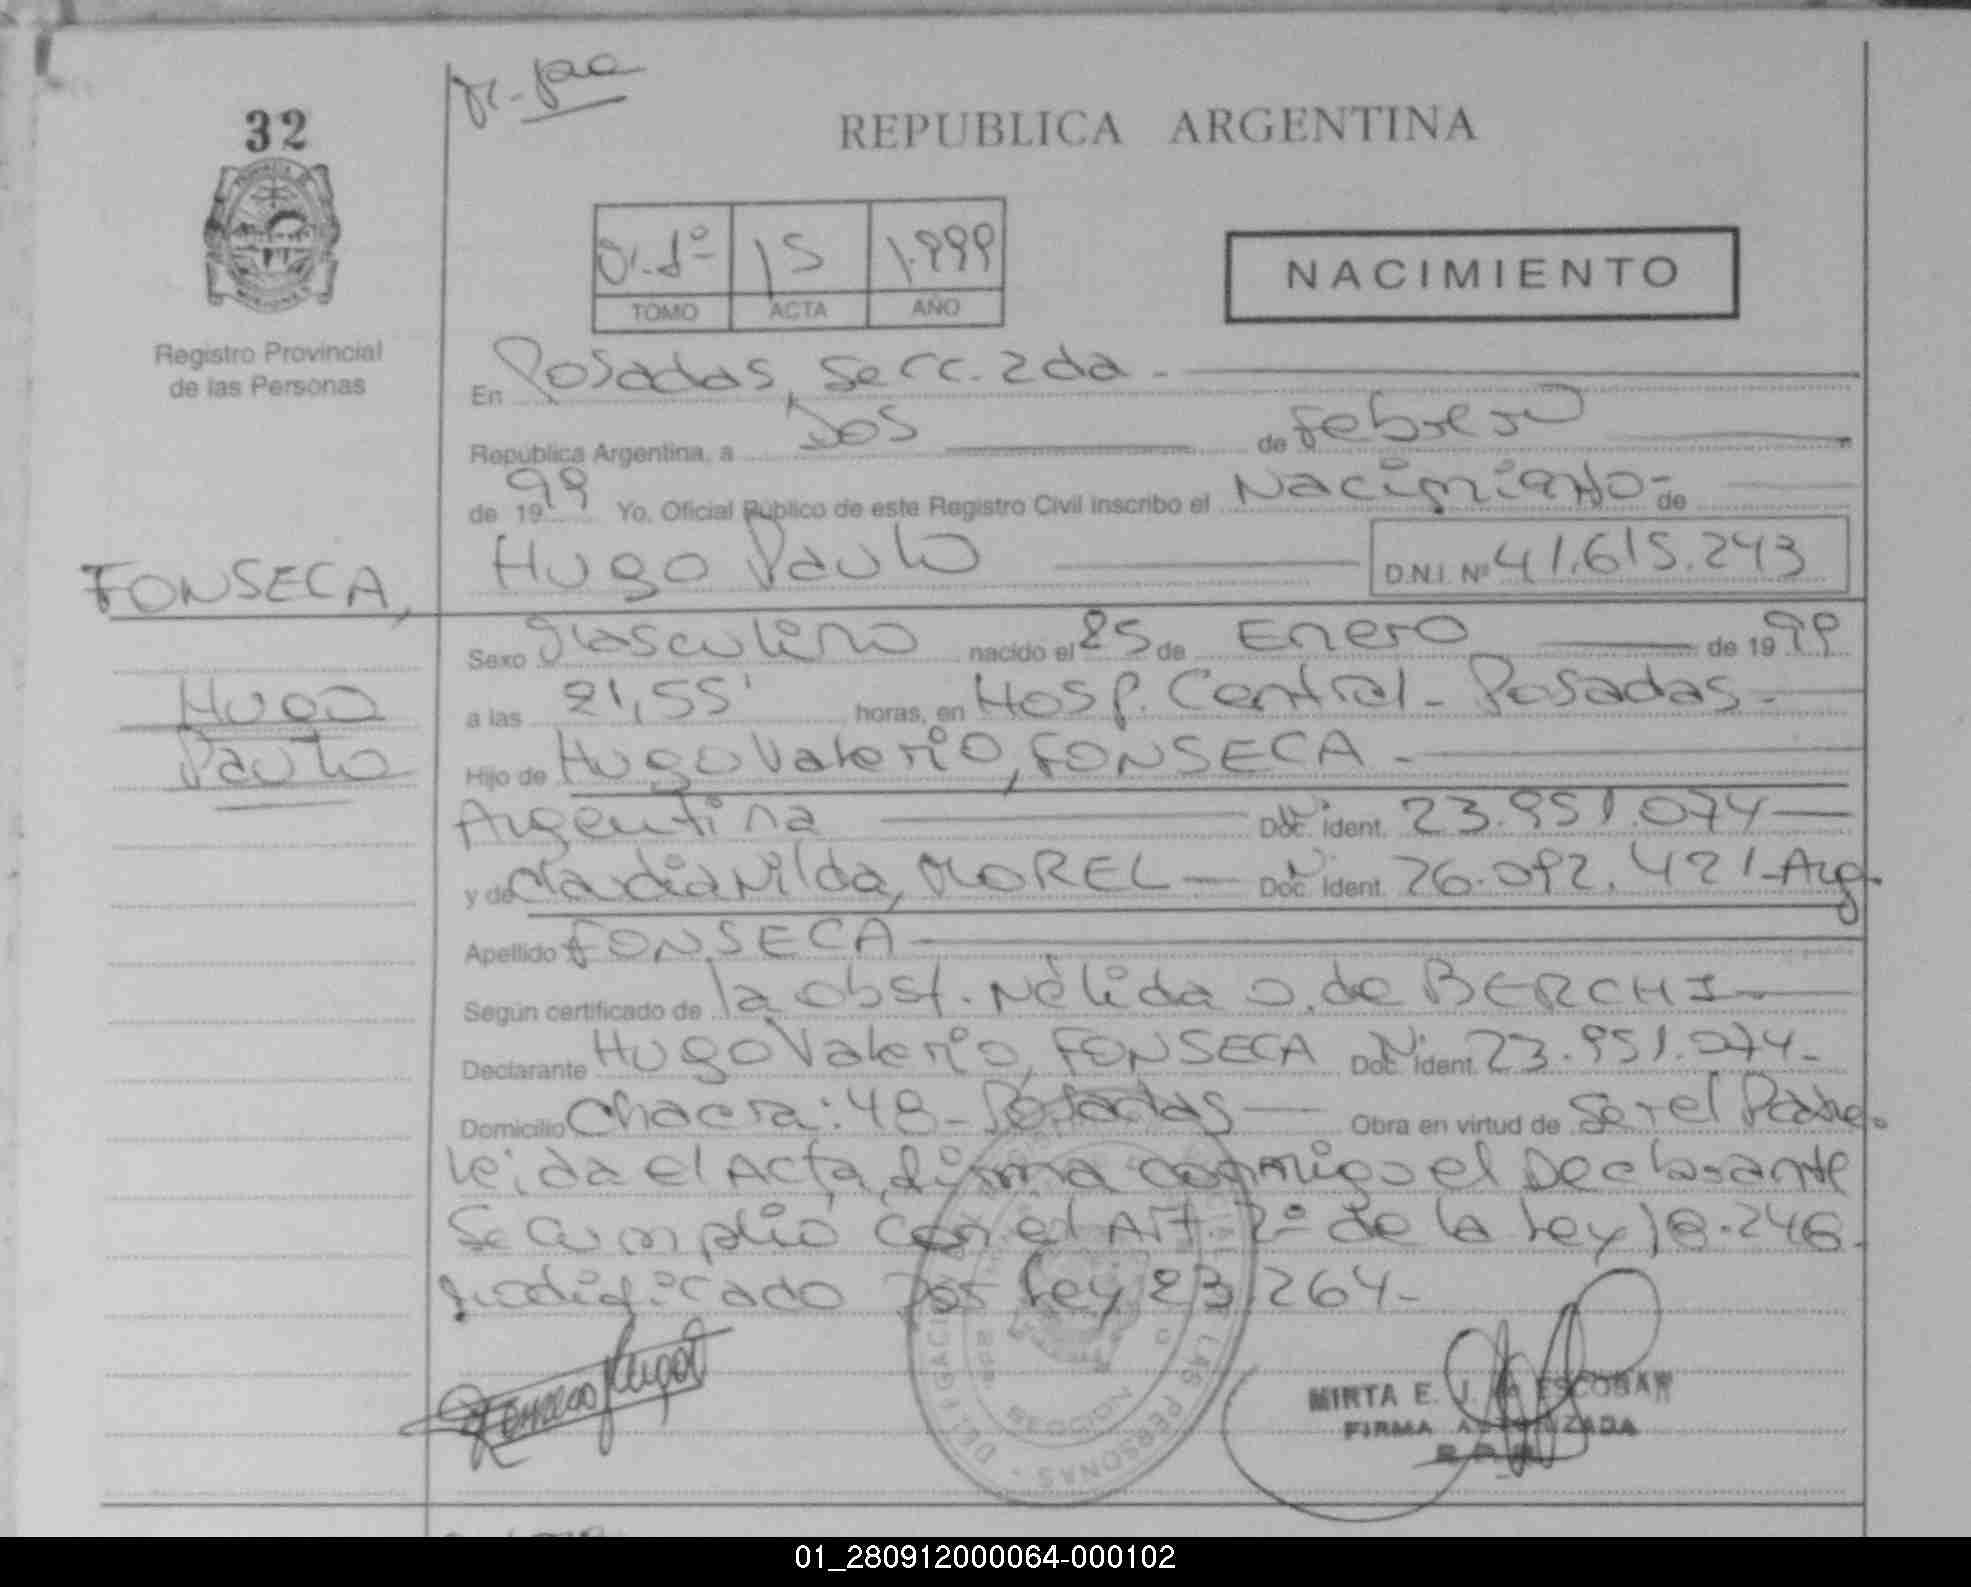 32
REPUBLICA ARGENTINA
1º 15 1.999
TOMO ACTA AÑO
NACIMIENTO
Registro Provincial
de las Personas
En Posadas, Secc. 2da -
República Argentina, a Dos de Febrero
de 1999 Yo, Oficial Público de este Registro Civil inscribo el Nacimiento - de
Hugo Paulo D.N.I. Nº 41.615.243
FONSECA,
Hugo
Paulo
Sexo Masculino nacido el 25 de Enero de 1999
a las 21,55' horas, en Hosp. Central - Posadas -
Hijo de Hugo Valerio, FONSECA -
Argentina Doc. Ident. 23.951.074
y de Claudia Nilda, MOREL - Doc. Ident. 26.092.421 - Arg.
Apellido FONSECA
Según certificado de la obst. Nélida O. de BERCHI
Declarante Hugo Valerio, FONSECA Doc. Ident. 23.951.074 -
Domicilio Chacra: 48 - Posadas Obra en virtud de Ser el Padre.
Leida el Acta, firma conmigo el Declarante
Se cumplió con el Art. 2º de la Ley 18.248
Modificado por Ley 23.264 -
DELEGACION
LAS PERSONAS
SECCION
MIRTA E. J. ESCOBAR
FIRMA AUTORIZADA
01_280912000064-000102